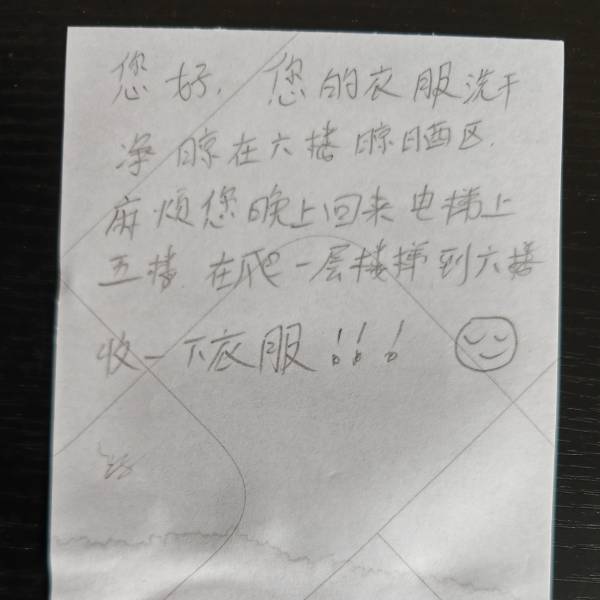 您好，您的衣服洗干
净 晾在六楼晾晒区.
麻烦您晚上回来电梯上
五楼 在爬一层楼梯到六楼
收一下衣服!!!